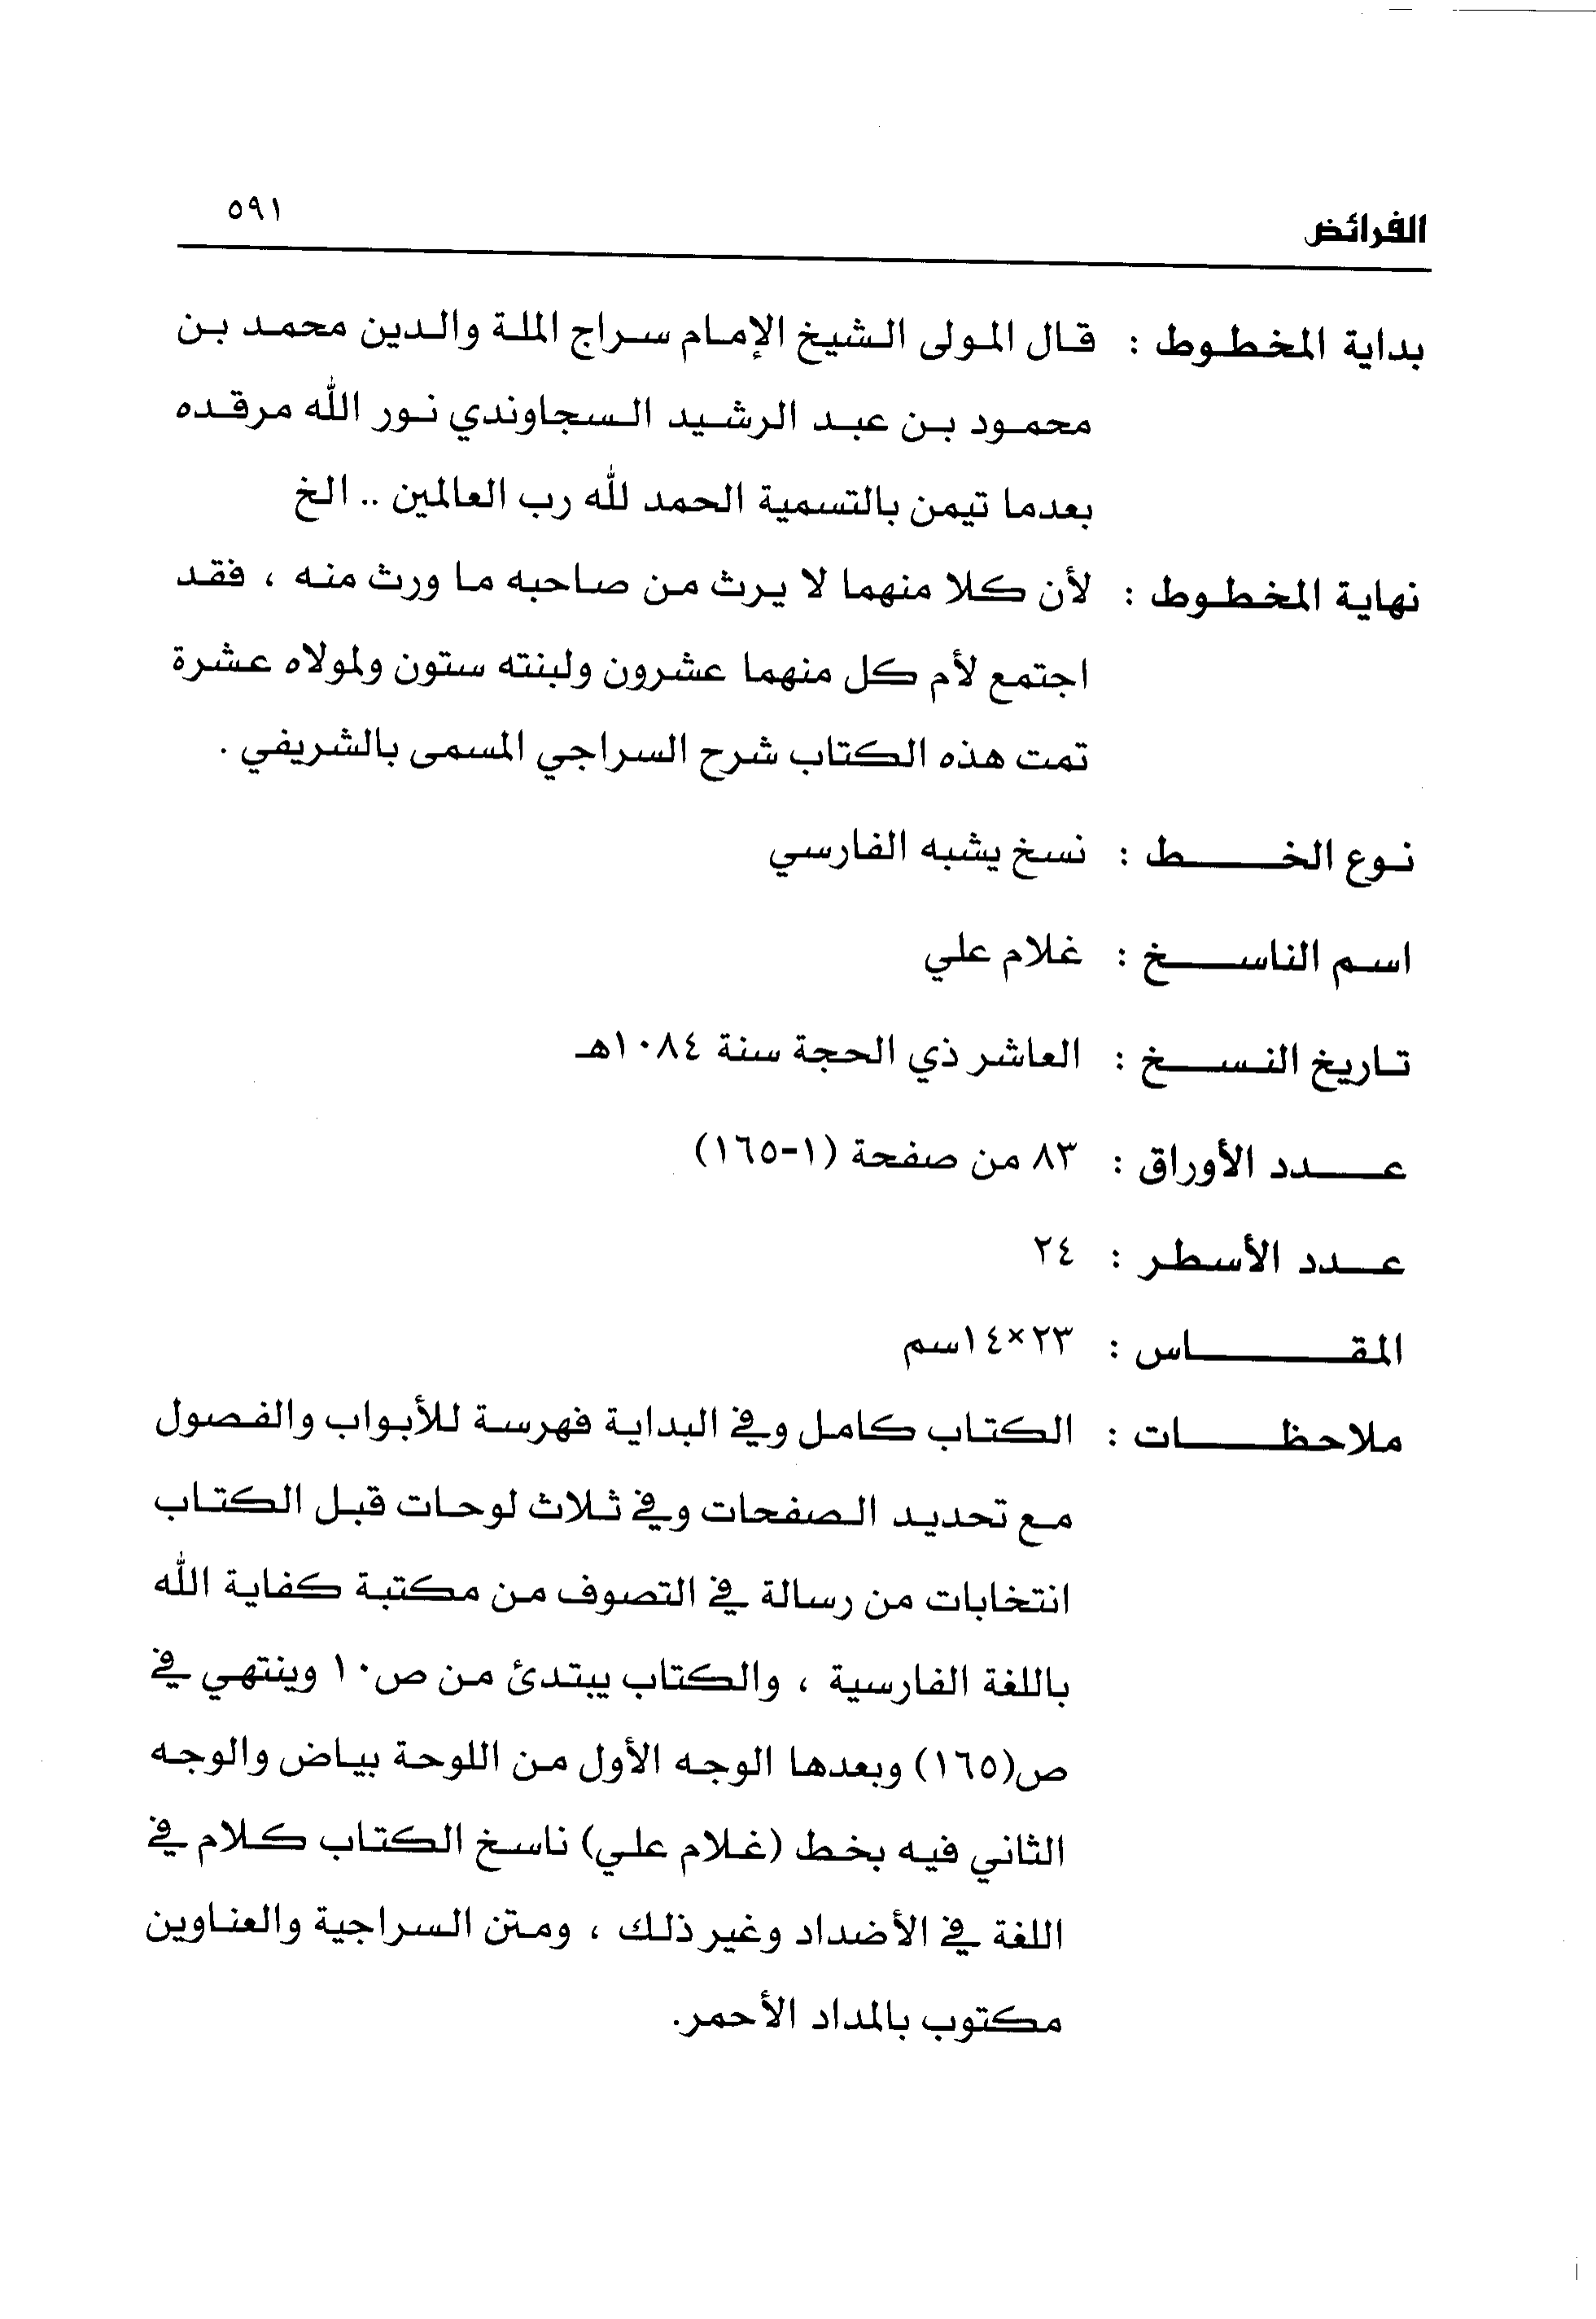 الفرائض ٥٩١
بداية المخطوط : قال المولى الشيخ الإمام سراج الملة والدين محمد بن
محمود بن عبد الرشيد السجاوندي نور الله مرقده
بعدما تيمن بالتسمية الحمد لله رب العالمين .. الخ
نهاية المخطوط : لأن كلا منهما لا يرث من صاحبه ما ورث منه ، فقد
اجتمع لأم كل منهما عشرون ولبنته ستون ولمولاه عشرة
تمت هذه الكتاب شرح السراجي المسمى بالشريفي .
نوع الخط : نسخ يشبه الفارسي
اسم الناسخ : غلام علي
تاريخ النسخ : العاشر ذي الحجة سنة ١٠٨٤هـ
عدد الأوراق : ٨٣ من صفحة (١-١٦٥)
عدد الأسطر : ٢٤
المقاس : ٢٣×١٤سم
ملاحظات : الكتاب كامل وفي البداية فهرسة للأبواب والفصول
مع تحديد الصفحات وفي ثلاث لوحات قبل الكتاب
انتخابات من رسالة في التصوف من مكتبة كفاية الله
باللغة الفارسية ، والكتاب يبتدئ من ص١٠ وينتهي في
ص(١٦٥) وبعدها الوجه الأول من اللوحة بياض والوجه
الثاني فيه بخط (غلام علي) ناسخ الكتاب كلام في
اللغة في الأضداد وغير ذلك ، ومتن السراجية والعناوين
مكتوب بالمداد الأحمر.